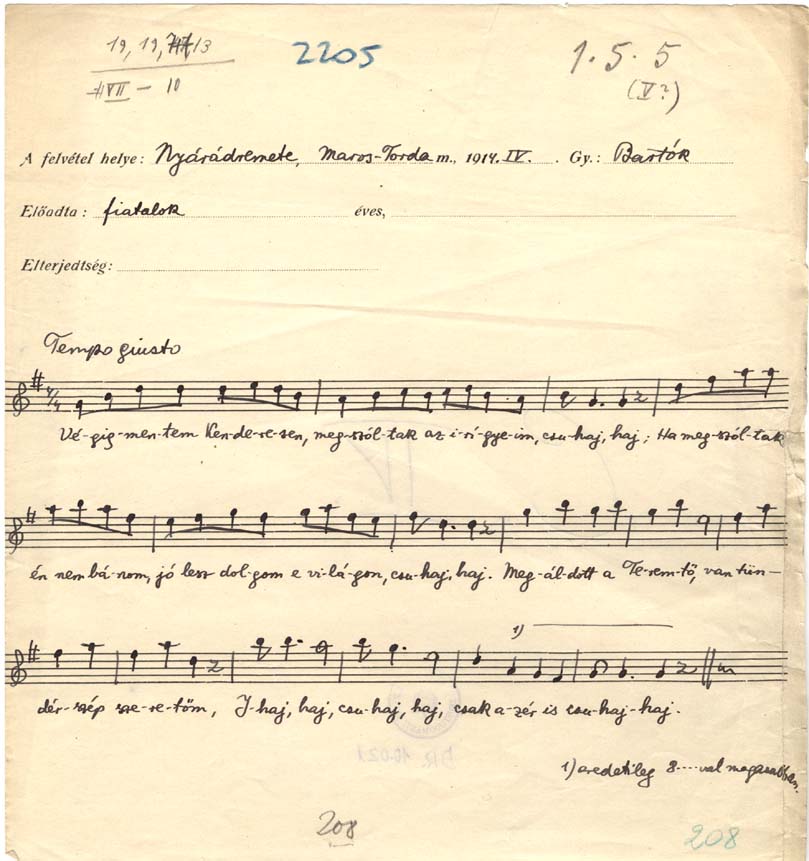 19, 19, 13
2205
1. 5. 5
VII – 10
(V?)
A felvétel helye: Nyárádremete, Maros-Torda m., 1914. IV. Gy.: Bartók
Előadta: fiatalok éves,
Elterjedtség:
Tempo giusto
4/4
Vé-gig-men-tem Ken-de-re-sen, meg-szól-tak az i-ri-gye-im, csu-haj, haj; Ha meg-szól-tak
én nem bá-nom, jó lesz dol-gom e vi-lá-gon, csu-haj, haj. Meg-ál-dott a Te-rem-tő, van tün-
1)
dér-szép sze-re-tőm, I-haj, haj, csu-haj, haj, csak a-zér is csu-haj-haj.
1) eredetileg 8----val magasabban.
208
208